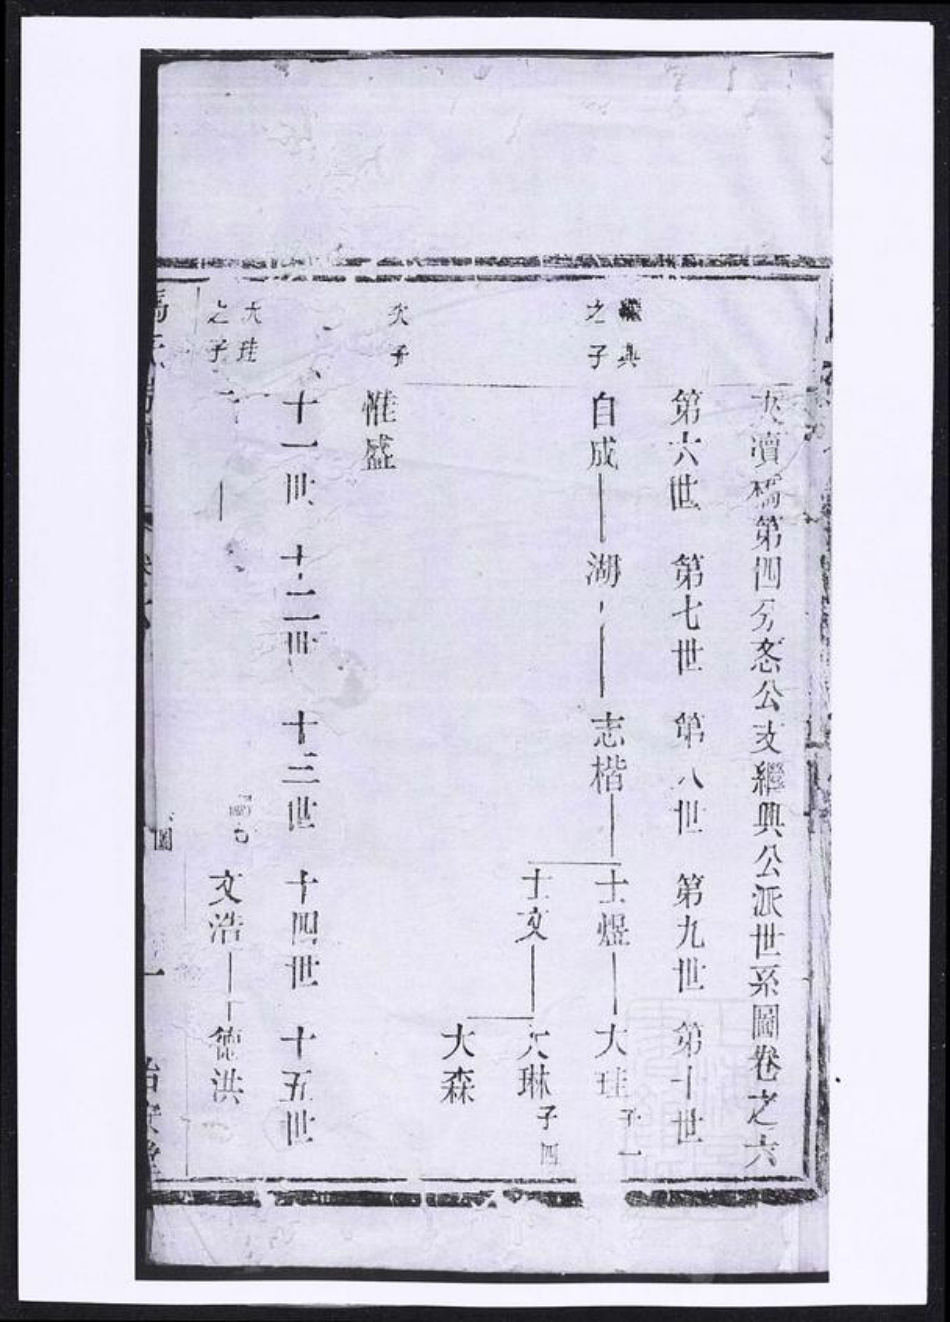 大瀆橋第四分忞公支繼興公派世系圖卷之六
第六世 第七世 第八世 第九世 第十世
繼興之子
自成 湖 志楷 士煜 大珪 子一
士文 大琳 子四
大森
次子
惟盛
十一世 十二世 十三世 十四世 十五世
大珪之子
文浩 德洪
圖
一